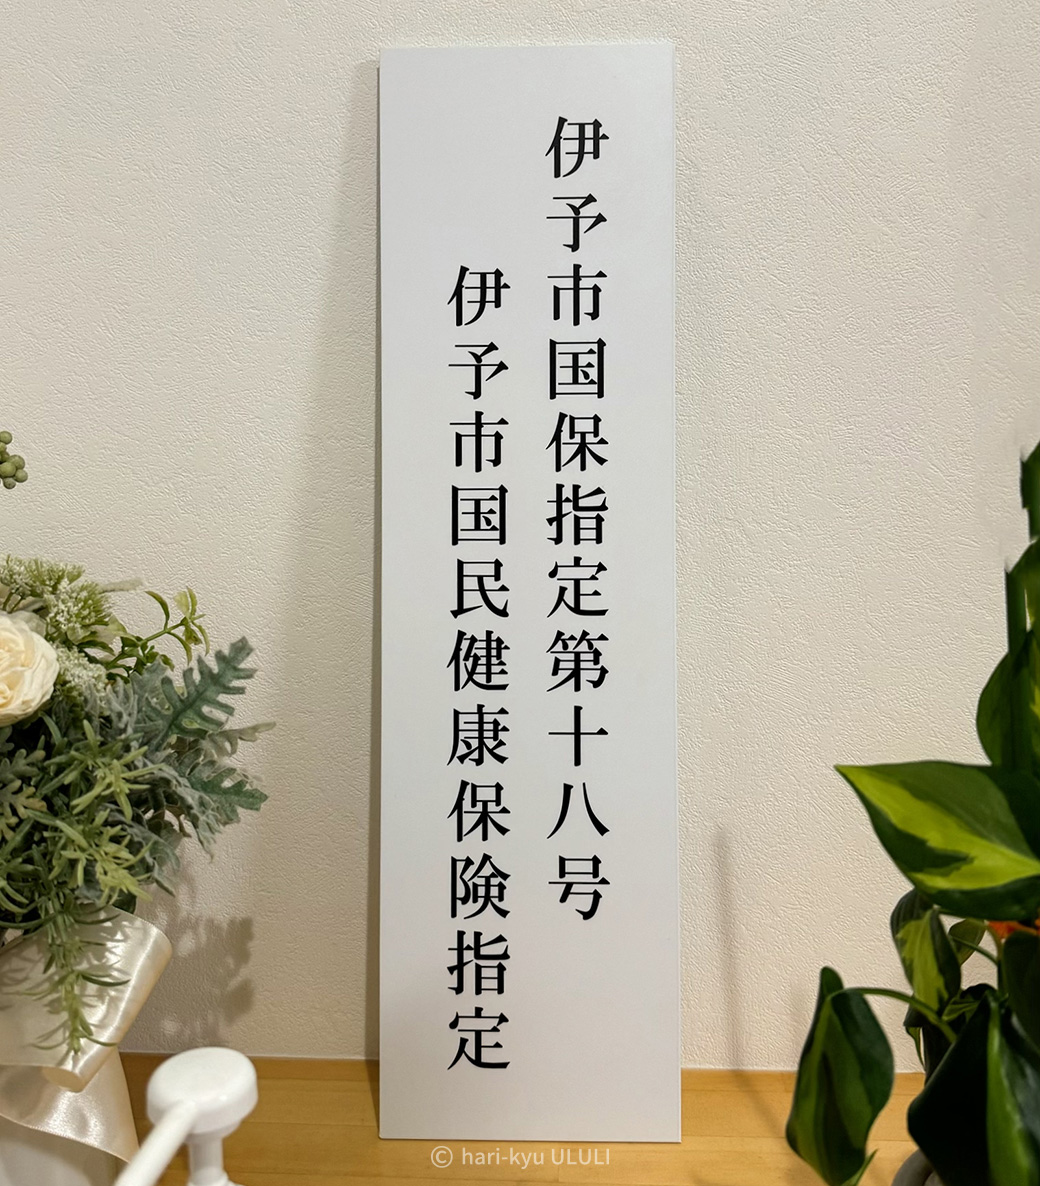 伊予市国保指定第十八号
伊予市国民健康保険指定
© hari-kyu ULULI